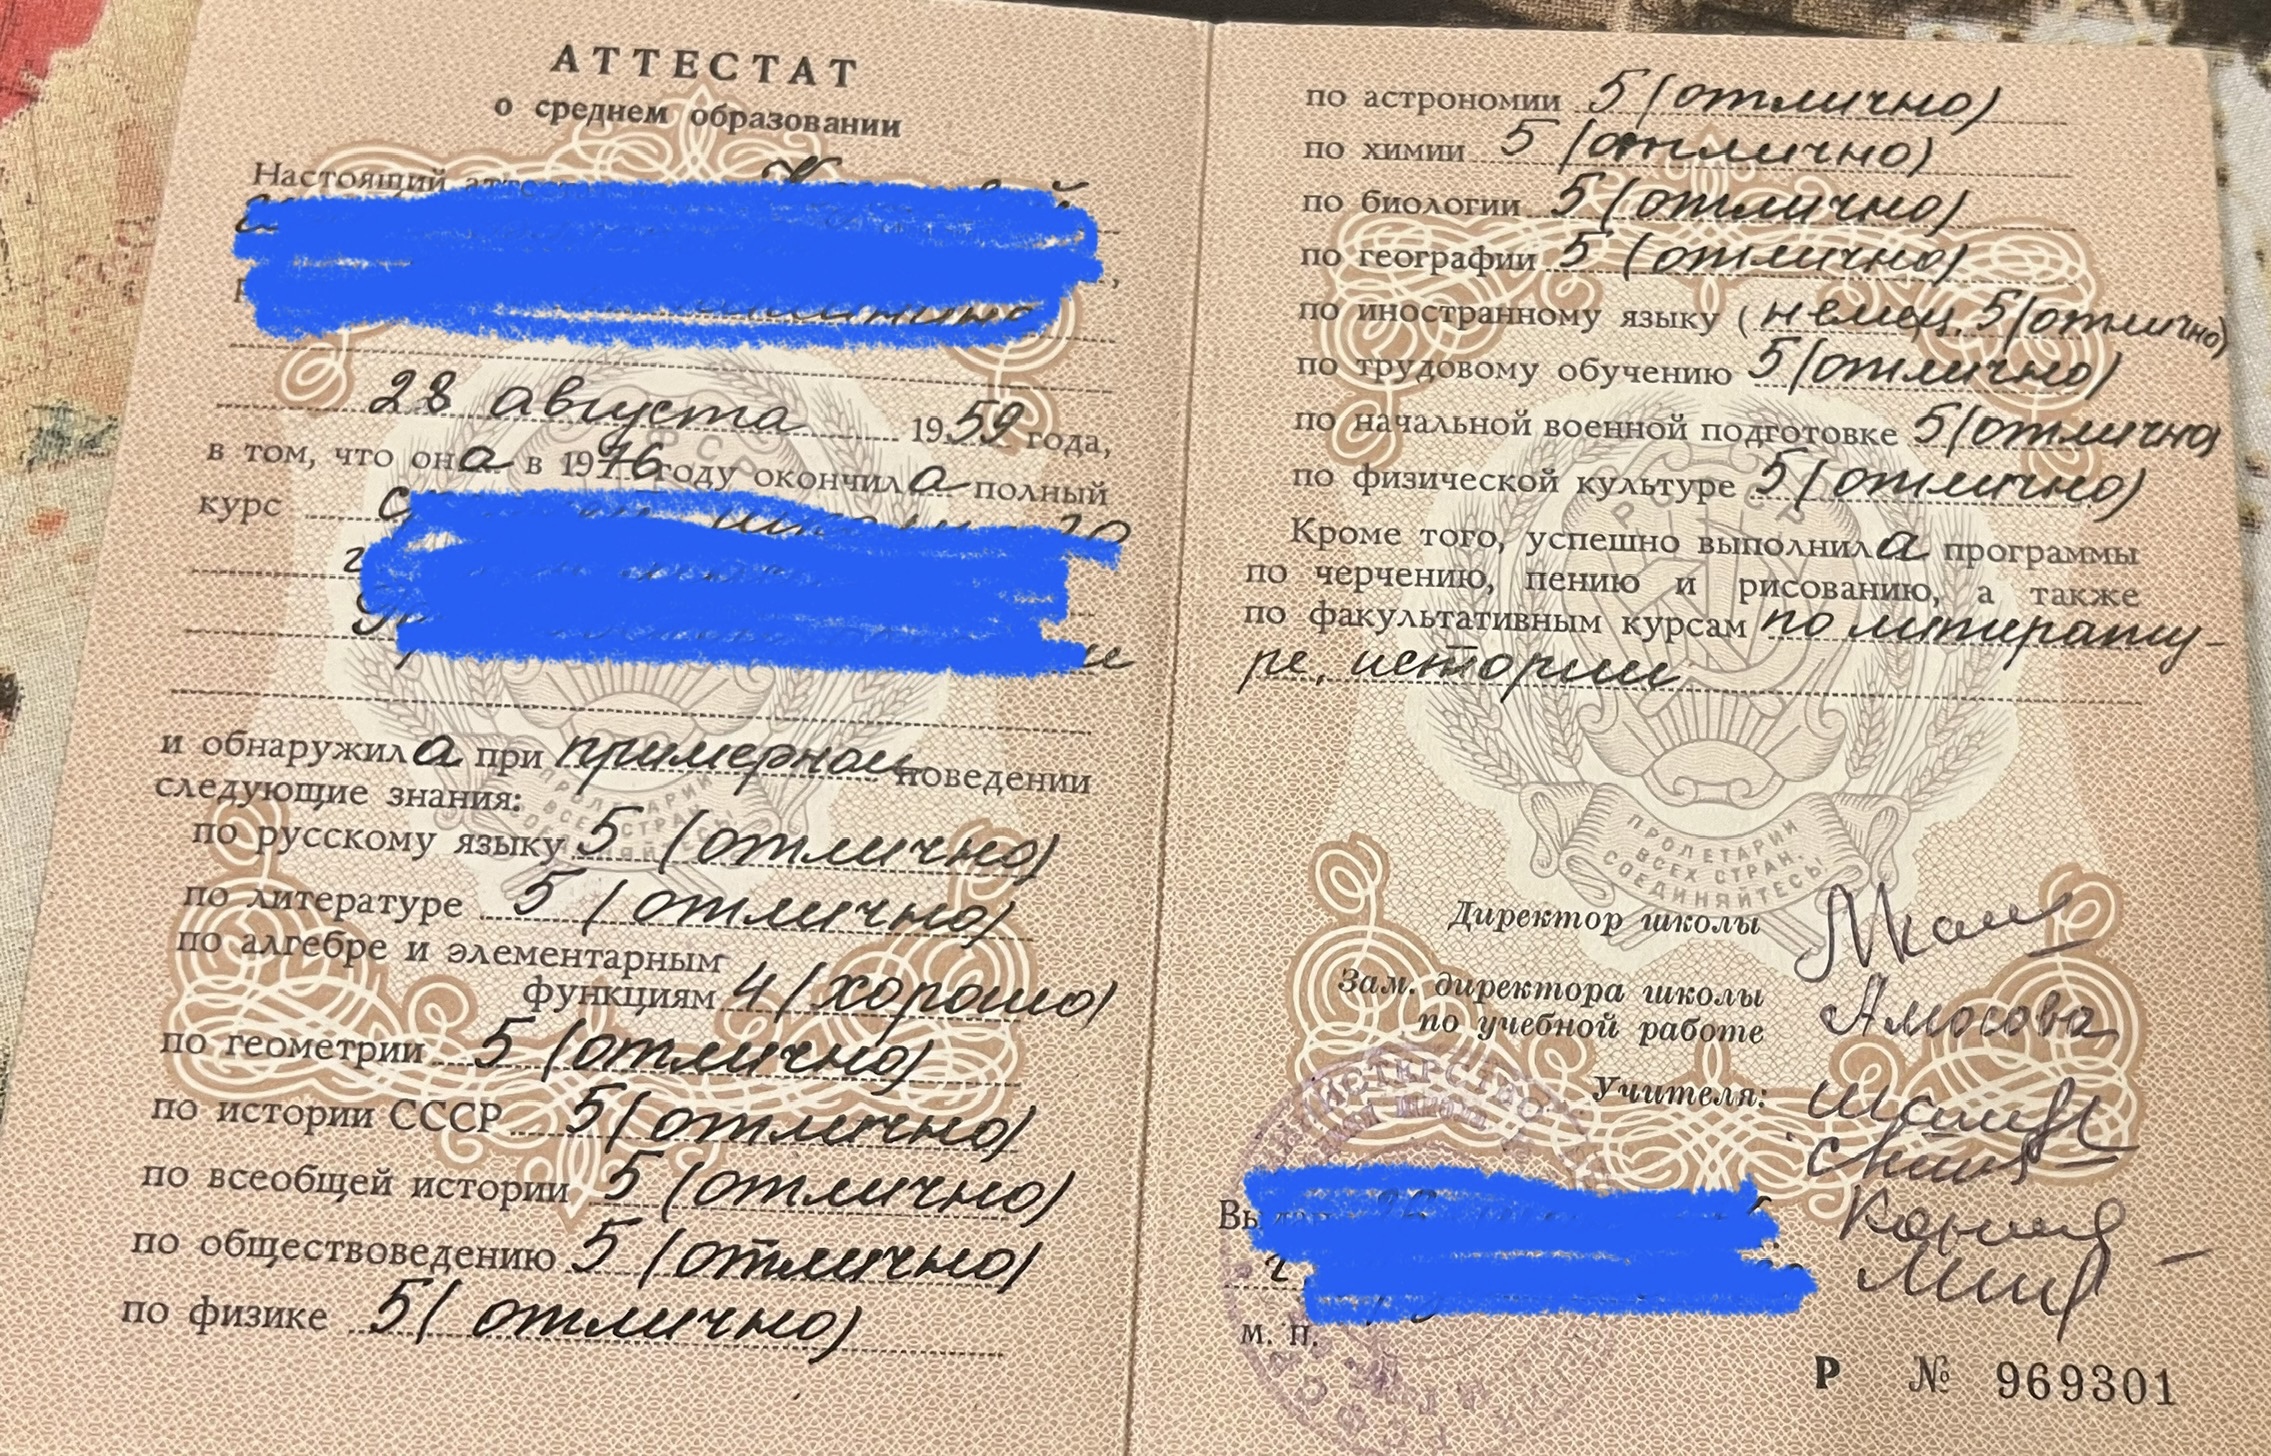 АТТЕСТАТ
о среднем образовании
Настоящий
28 августа 1959 года,
в том, что она в 1976 году окончила полный
курс
и обнаружила при примерном поведении
следующие знания:
по русскому языку 5 (отлично)
по литературе 5 (отлично)
по алгебре и элементарным
функциям 4 (хорошо)
по геометрии 5 (отлично)
по истории СССР 5 (отлично)
по всеобщей истории 5 (отлично)
по обществоведению 5 (отлично)
по физике 5 (отлично)
по астрономии 5 (отлично)
по химии 5 (отлично)
по биологии 5 (отлично)
по географии 5 (отлично)
по иностранному языку (немец. 5 (отлично)
по трудовому обучению 5 (отлично)
по начальной военной подготовке 5 (отлично)
по физической культуре 5 (отлично)
Кроме того, успешно выполнила программы
по черчению, пению и рисованию, а также
по факультативным курсам по литерату-
ре, истории
РСФСР
ПРОЛЕТАРИИ
ВСЕХ СТРАН,
СОЕДИНЯЙТЕСЬ
Директор школы
Зам. директора школы
по учебной работе Амосова
Учителя:
МИНИСТЕРСТВО
м. п.
Р № 969301